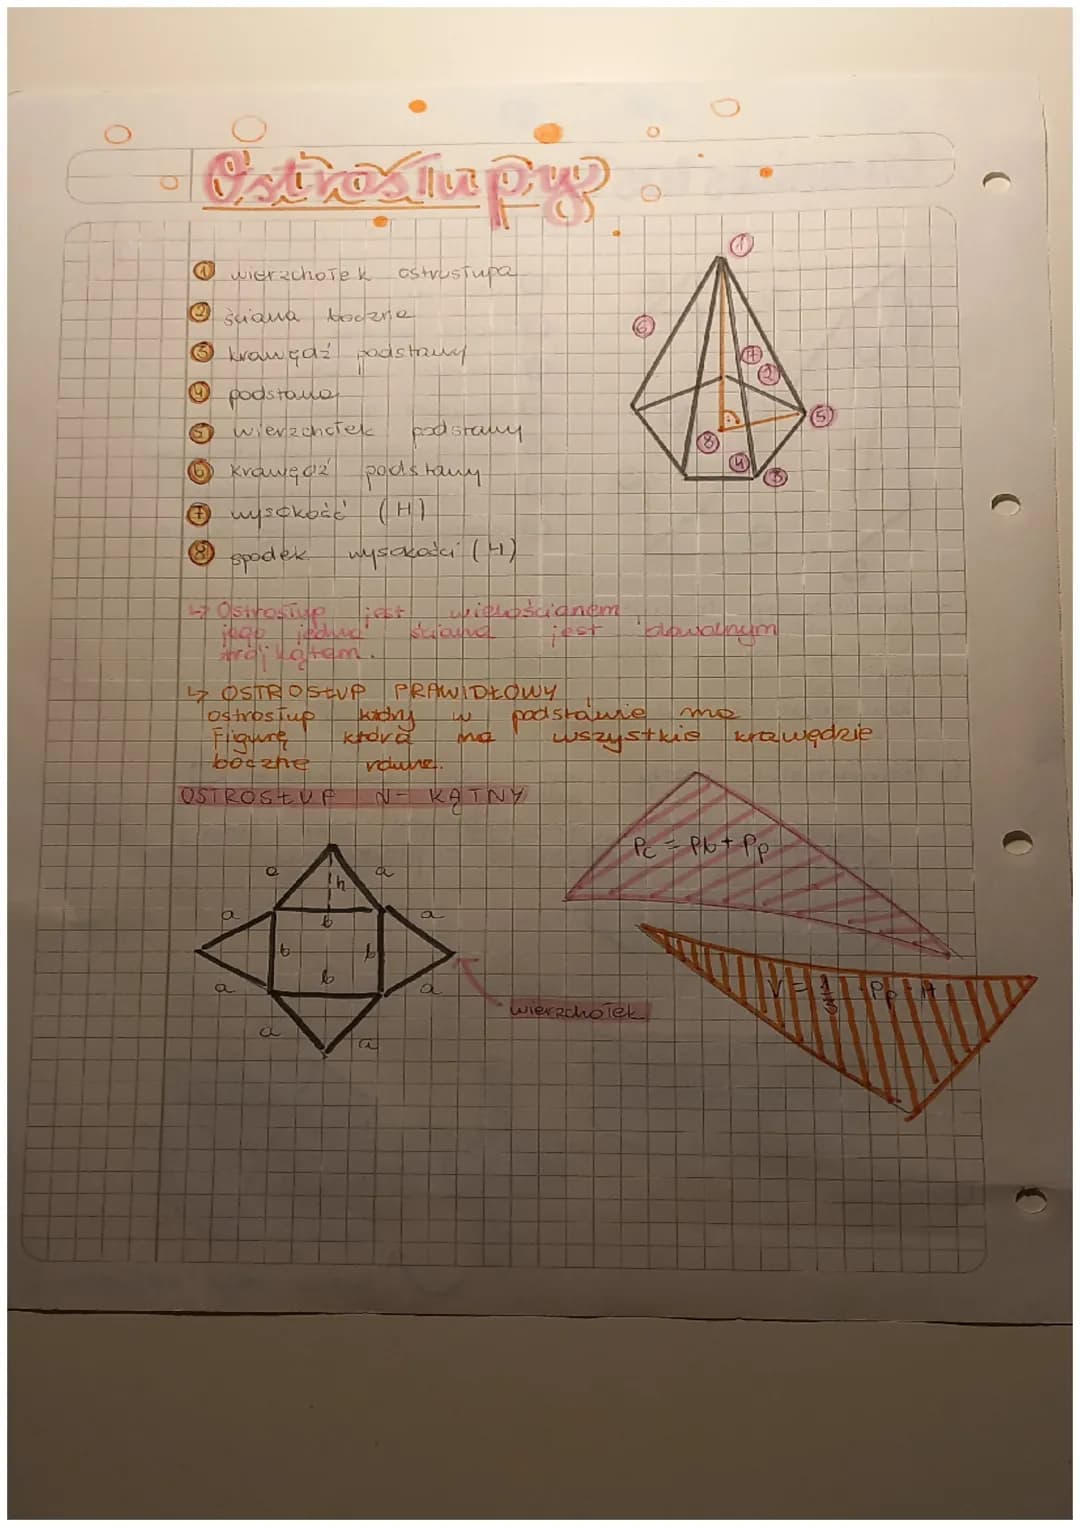 Ostrosłupy
1 wierzchołek ostrosłupa
2 ściana boczna
3 krawędź podstawy
4 podstawa
5 wierzchołek podstawy
6 krawędź podstawy
7 wysokość (H)
8 spodek wysokości (H)
1
6
7
2
5
8
4
3
↳ Ostrosłup jest wielościanem
jego jedna ściana jest dowolnym
trójkątem.
↳ OSTROSŁUP PRAWIDŁOWY
ostrosłup który w podstawie ma
Figurę która ma wszystkie krawędzie
boczne równe.
OSTROSŁUP N-KĄTNY
Pc = Pb + Pp
a a
h
a b a
b b
b
a a
a a
wierzchołek
V = 1/3 · Pp · H